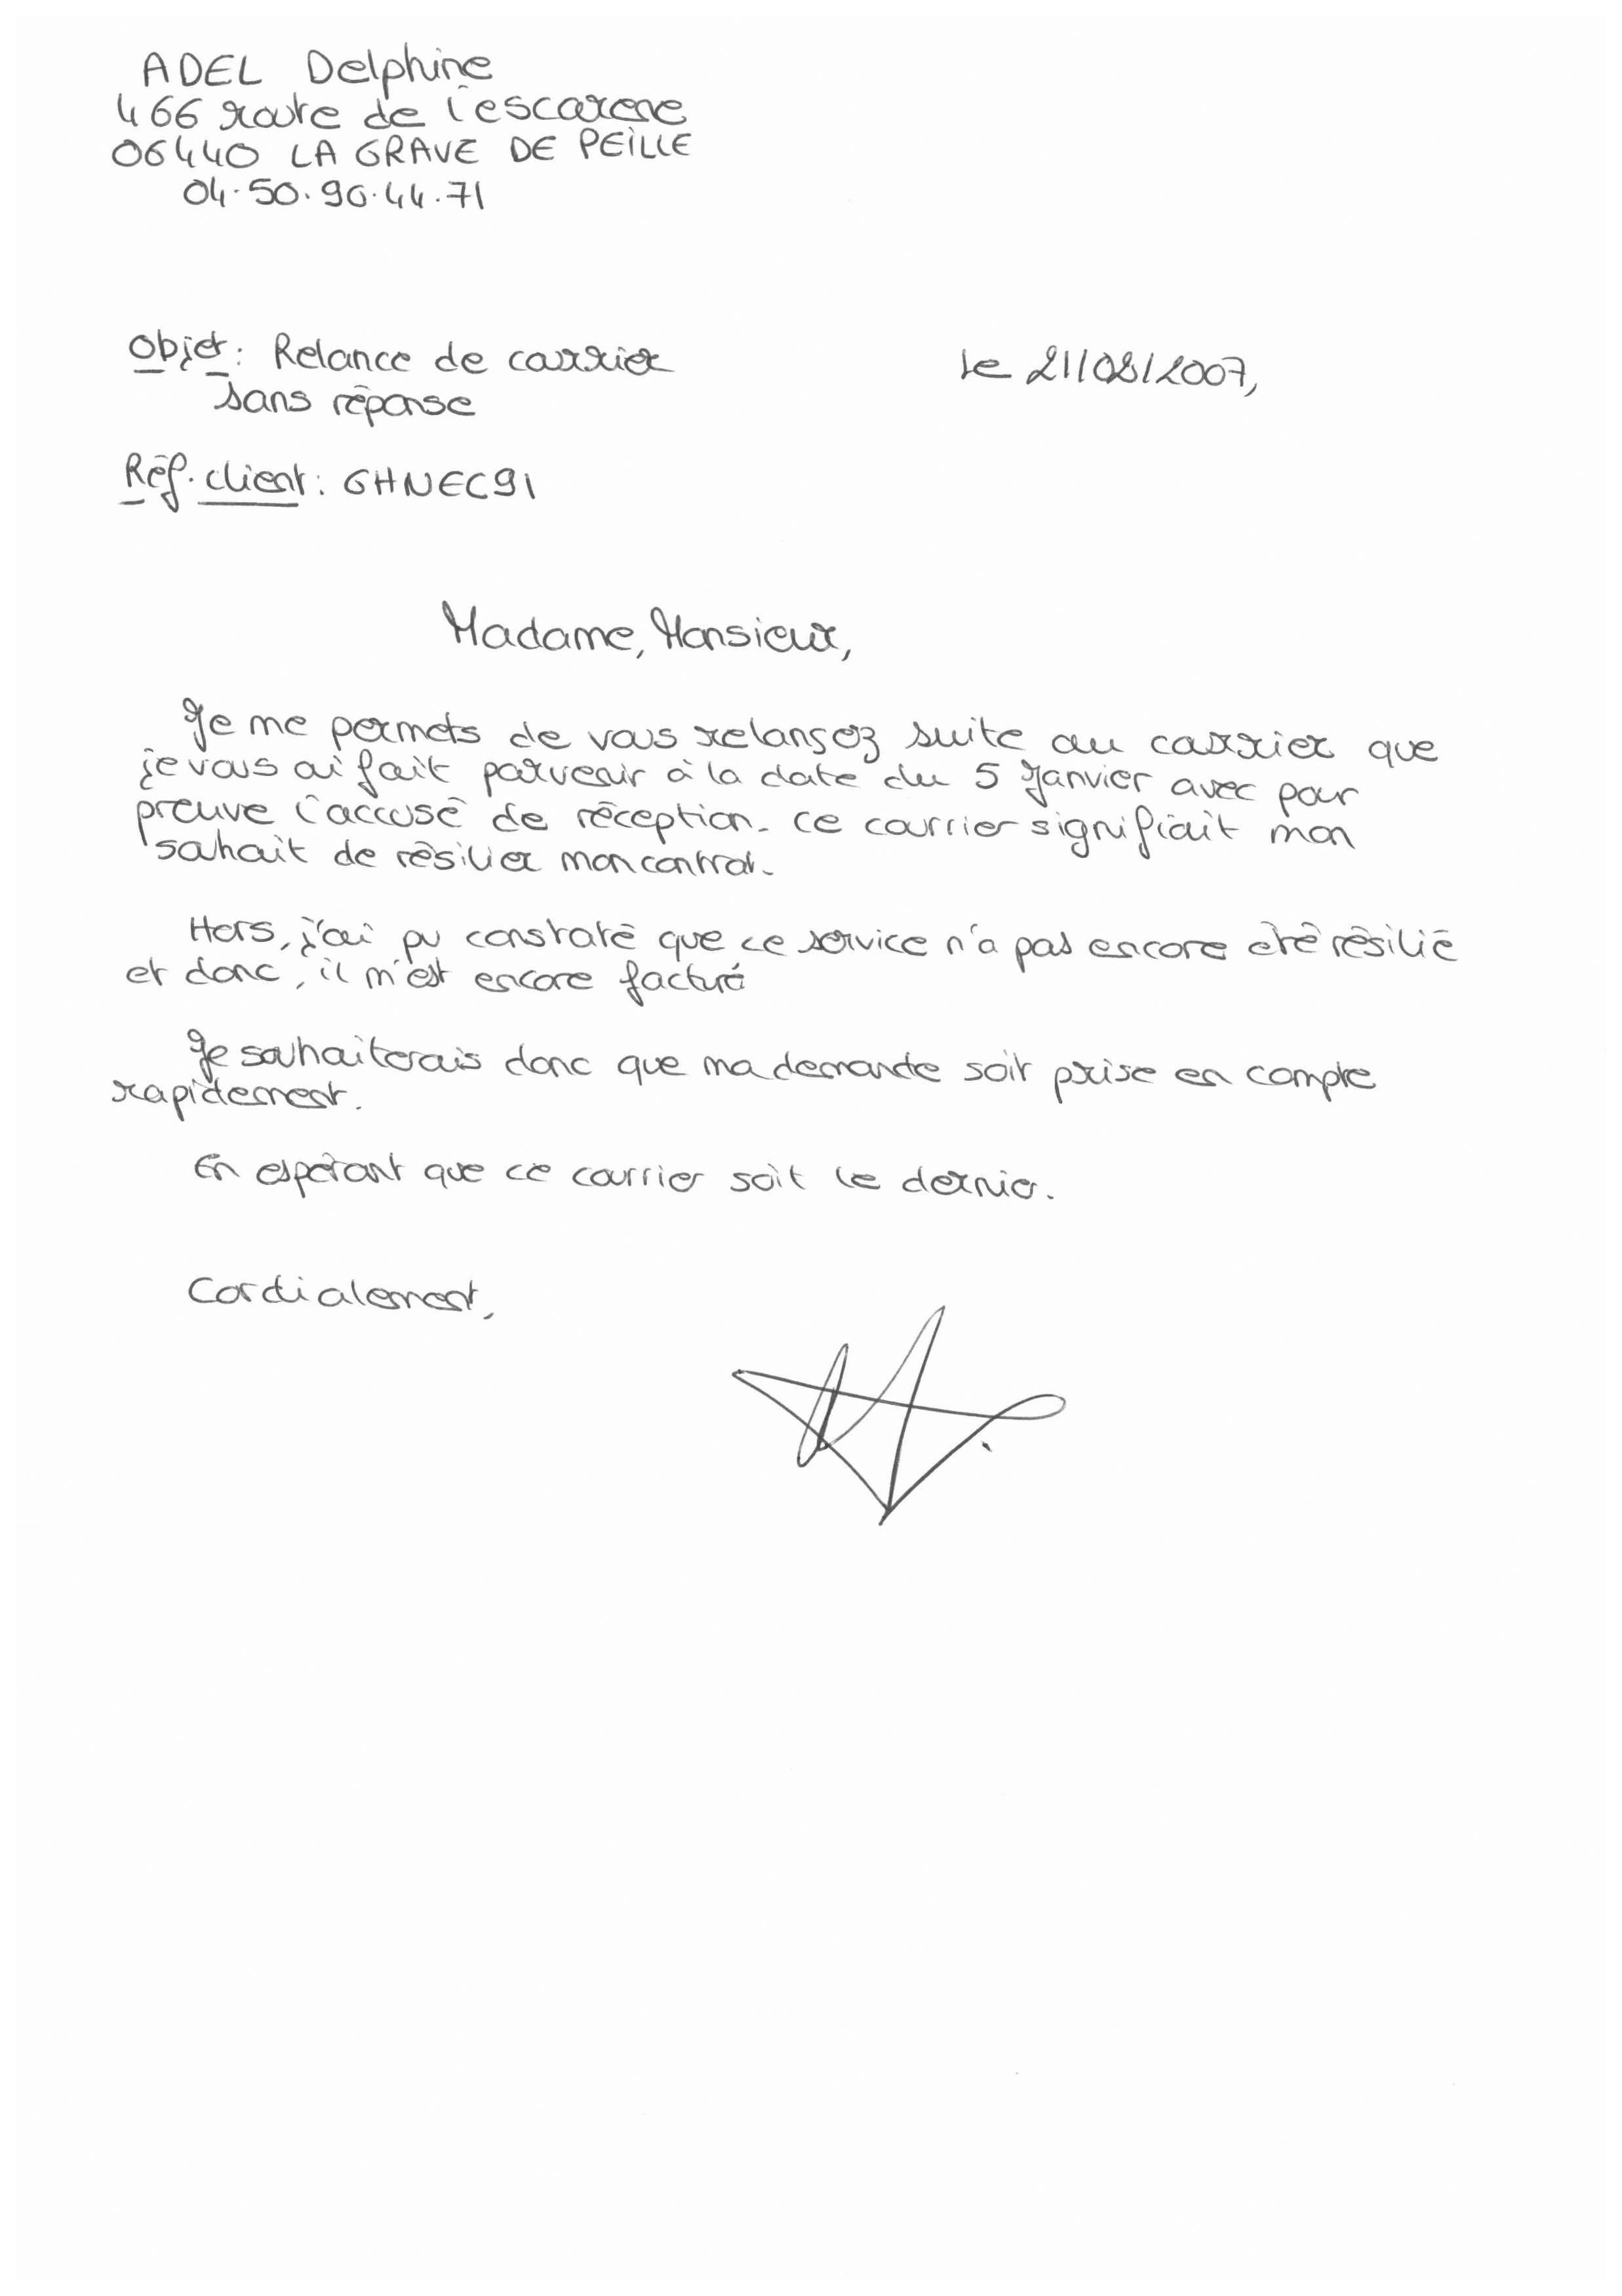 ADEL Delphine
466 route de l'escarene
06440 LA GRAVE DE PEILLE
04.50.90.44.71
Objet : Relance de courrier
sans réponse
le 21/08/2007,
Réf. client : GHNEC91
Madame, Monsieur,
Je me permets de vous relansez suite au courrier que
je vous ai fait parvenir à la date du 5 Janvier avec pour
preuve l'accusé de réception. ce courrier signifiait mon
souhait de résilier mon contrat.
Hors, j'ai pu constaté que ce service n'a pas encore été résilié
et donc, il m'est encore facturé
Je souhaiterais donc que ma demande soit prise en compte
rapidement.
En espérant que ce courrier soit le dernier.
Cordialement,